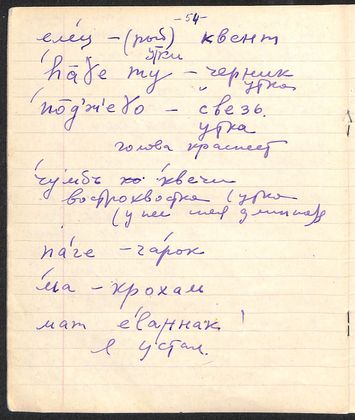 -54-
елец - (рыб) квент
утки
па̄ɣе ту - черник
утка
по̄дʼжеɣо - свезь.
утка
голова краснеет
чумбъ хо квечи
вострохвостка (утка
(у неё шея длинная
па́ге - ча́рок
ма - крохаль
мат е́ваннак!
я устал.